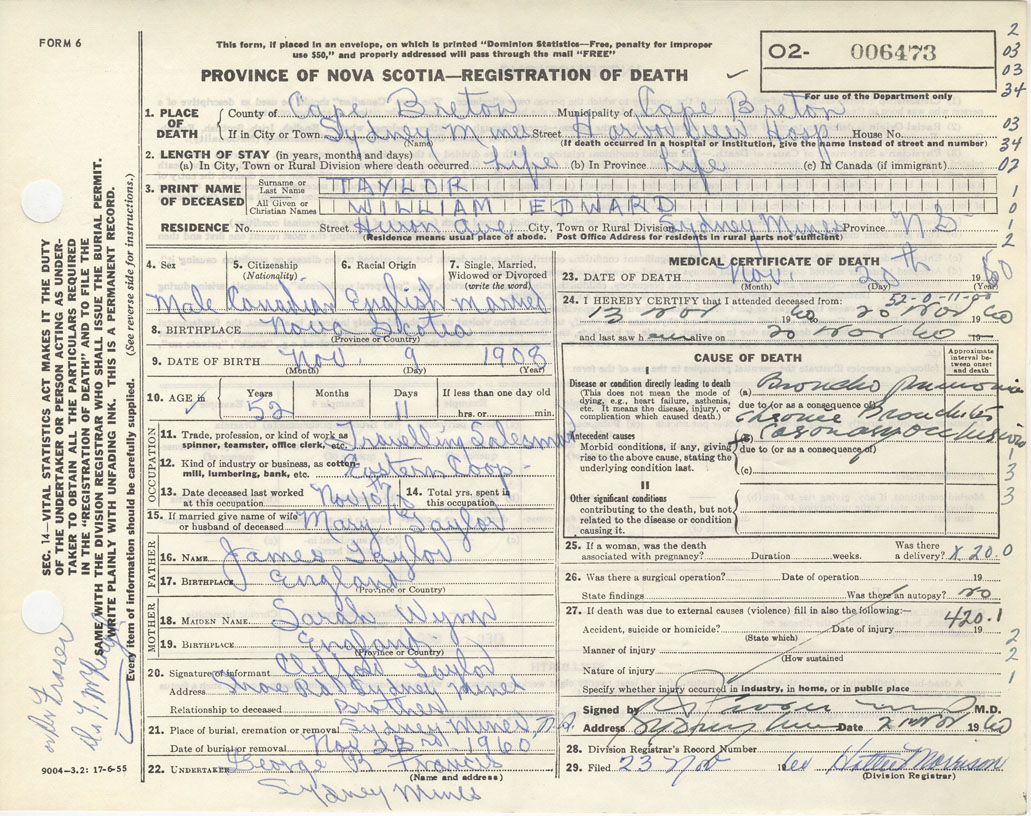 FORM 6
This form, if placed in an envelope, on which is printed "Dominion Statistics—Free, penalty for improper
use $50," and properly addressed will pass through the mail "FREE"
O2- 006473
PROVINCE OF NOVA SCOTIA—REGISTRATION OF DEATH
For use of the Department only
2
03
03
34
03
34
02
1
0
1
2
1. PLACE OF DEATH
County of Cape Breton Municipality of Cape Breton
If in City or Town Sydney Mines Street Harbor View Hosp House No.
(Name) (If death occurred in a hospital or institution, give the name instead of street and number)
2. LENGTH OF STAY (in years, months and days)
(a) In City, Town or Rural Division where death occurred Life (b) In Province Life (c) In Canada (if immigrant)
3. PRINT NAME OF DECEASED
Surname or Last Name TAYLOR
All Given or Christian Names WILLIAM EDWARD
RESIDENCE No. Street Huron Ave City, Town or Rural Division Sydney Mines Province N S
(Residence means usual place of abode. Post Office Address for residents in rural parts not sufficient)
4. Sex 5. Citizenship (Nationality) 6. Racial Origin 7. Single, Married, Widowed or Divorced (write the word)
Male Canadian English married
8. BIRTHPLACE Nova Scotia
(Province or Country)
9. DATE OF BIRTH Nov. 9 1908
(Month) (Day) (Year)
10. AGE in Years Months Days If less than one day old
52 11 hrs. or min.
OCCUPATION
11. Trade, profession, or kind of work as spinner, teamster, office clerk, etc. Travelling Salesman
12. Kind of industry or business, as cotton-mill, lumbering, bank, etc. Eastern Coop-
13. Date deceased last worked at this occupation Nov 10th 14. Total yrs. spent in this occupation
15. If married give name of wife or husband of deceased Mary Taylor
FATHER
16. NAME James Taylor
17. BIRTHPLACE England
(Province or Country)
MOTHER
18. MAIDEN NAME Sarah Wynn
19. BIRTHPLACE England
(Province or Country)
20. Signature of informant Clifford Taylor
Address Shore Rd Sydney Mines
Relationship to deceased Brother
21. Place of burial, cremation or removal Sydney Mines N.S
Date of burial or removal Nov 23rd 1960
22. UNDERTAKER George B Francis
(Name and address)
Sydney Mines
MEDICAL CERTIFICATE OF DEATH
23. DATE OF DEATH Nov. 20th 1960
(Month) (Day) (Year)
52-0-11-00
24. I HEREBY CERTIFY that I attended deceased from:
13 Nov 1960 20 Nov 60
and last saw h alive on 20 Nov 60 19
CAUSE OF DEATH
Approximate interval between onset and death
I
Disease or condition directly leading to death
(This does not mean the mode of dying, e.g., heart failure, asthenia, etc. It means the disease, injury, or complication which caused death.)
(a) Broncho Pneumonia
due to (or as a consequence of)
Chronic Bronchitis
Antecedent causes
Morbid conditions, if any, giving rise to the above cause, stating the underlying condition last.
(b) Coronary occlusion
due to (or as a consequence of)
(c)
1
3
3
II
Other significant conditions
contributing to the death, but not related to the disease or condition causing it.
25. If a woman, was the death associated with pregnancy? Duration weeks. Was there a delivery? X 20.0
26. Was there a surgical operation? Date of operation 19
State findings Was there an autopsy? no
27. If death was due to external causes (violence) fill in also the following:—
420.1
Accident, suicide or homicide? Date of injury 19
(State which)
Manner of injury
(How sustained
Nature of injury
Specify whether injury occurred in industry, in home, or in public place
2
2
1
Signed by M.D.
Address Sydney Mines Date 21 Nov 1960
28. Division Registrar's Record Number
29. Filed 23 Nov 60 Hattie Morrison
(Division Registrar)
SEC. 14—VITAL STATISTICS ACT MAKES IT THE DUTY
OF THE UNDERTAKER OR PERSON ACTING AS UNDER-
TAKER TO OBTAIN ALL THE PARTICULARS REQUIRED
IN THE "REGISTRATION OF DEATH" AND FILE THE
SAME WITH THE DIVISION REGISTRAR WHO SHALL ISSUE THE BURIAL PERMIT.
WRITE PLAINLY WITH UNFADING INK. THIS IS A PERMANENT RECORD.
Every item of information should be carefully supplied. (See reverse side for instructions.)
9004-3.2: 17-6-55